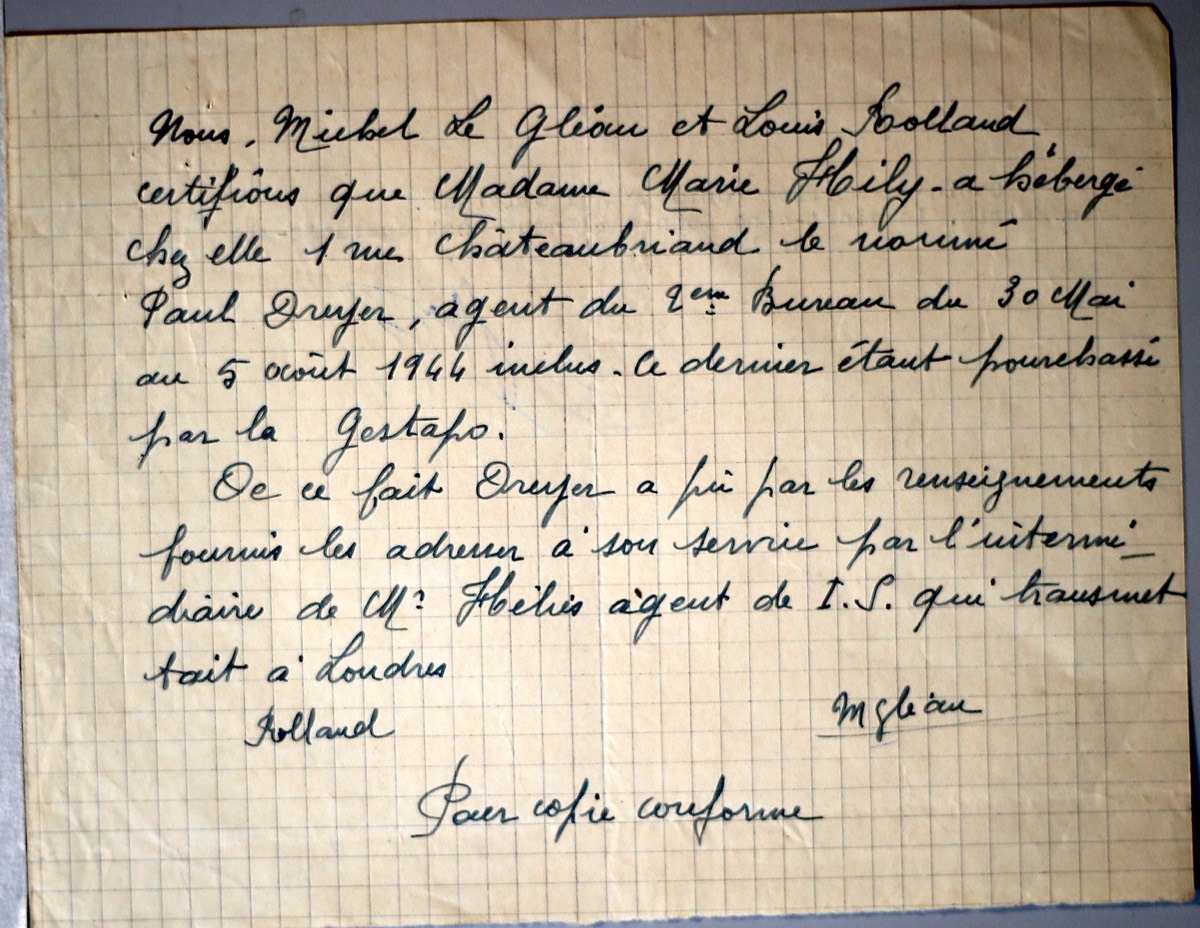 Nous, Michel Le Gléau et Louis Rolland
certifiôns que Madame Marie Hily - a hébergé
chez elle 1 rue Châteaubriand le nommé
Paul Dreyer, agent du 2eme Bureau du 30 Mai
au 5 août 1944 inclus - ce dernier étant pourchassé
par la Gestapo.
De ce fait Dreyer a pû par les renseignements
fournis les adresser à son service par l'intermé-
diaire de Mr Héliès agent de I.S. qui transmet
tait à Londres
Rolland MGléau
Pour copie conforme